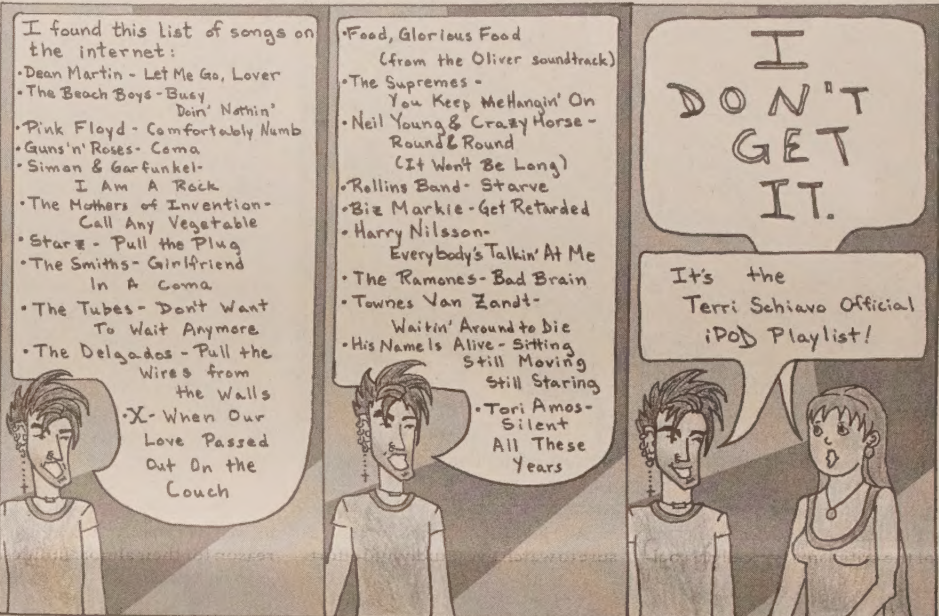 I found this list of songs on
the internet:
•Dean Martin - Let Me Go, Lover
•The Beach Boys - Busy
Doin' Nothin'
•Pink Floyd - Comfortably Numb
•Guns 'n' Roses - Coma
•Simon & Garfunkel-
I Am A Rock
•The Mothers of Invention-
Call Any Vegetable
•Starz - Pull the Plug
•The Smiths - Girlfriend
In A Coma
•The Tubes - Don't Want
To Wait Anymore
•The Delgados - Pull the
Wires from
the Walls
•X - When Our
Love Passed
Out On the
Couch
•Food, Glorious Food
(from the Oliver soundtrack)
•The Supremes -
You Keep Me Hangin' On
•Neil Young & Crazy Horse -
Round & Round
(It Won't Be Long)
•Rollins Band - Starve
•Biz Markie - Get Retarded
•Harry Nilsson-
Everybody's Talkin' At Me
•The Ramones - Bad Brain
•Townes Van Zandt-
Waitin' Around to Die
•His Name Is Alive - Sitting
Still Moving
Still Staring
•Tori Amos-
Silent
All These
Years
I
DON'T
GET
IT.
It's the
Terri Schiavo Official
iPOD Playlist!